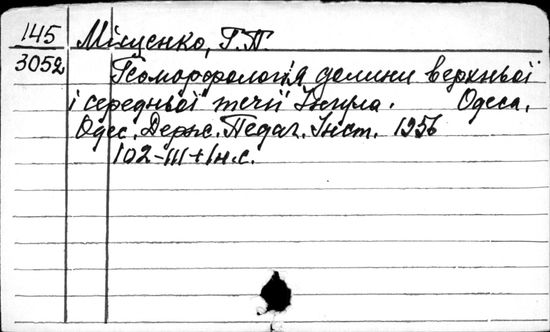 145 Міщенко, Г.П.
3052 Геоморфологія долини верхньої
і середньої течії Інгула. Одеса,
Одес. Держ. Педаг. Інст. 1956
102-III+Iн.с.